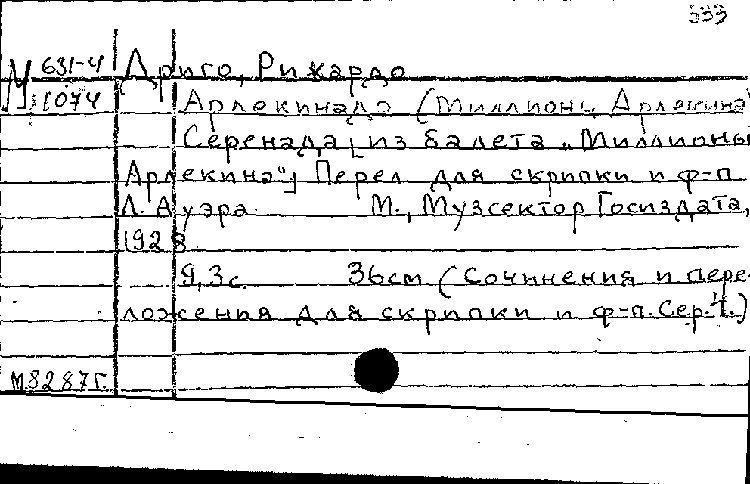 533
М 631-4
1074
Дриго, Рикардо
Арлекинада (Миллионы Арлекина)
Серенада [из балета „Миллионы
Арлекина"] Перел для скрипки и ф-п
Л. Ауэра М., Музсектор Госиздата,
1928
9, 3 с. 36 см (Сочинения и пере-
ложения для скрипки и ф-п. Сер. 1.)
М8287г.